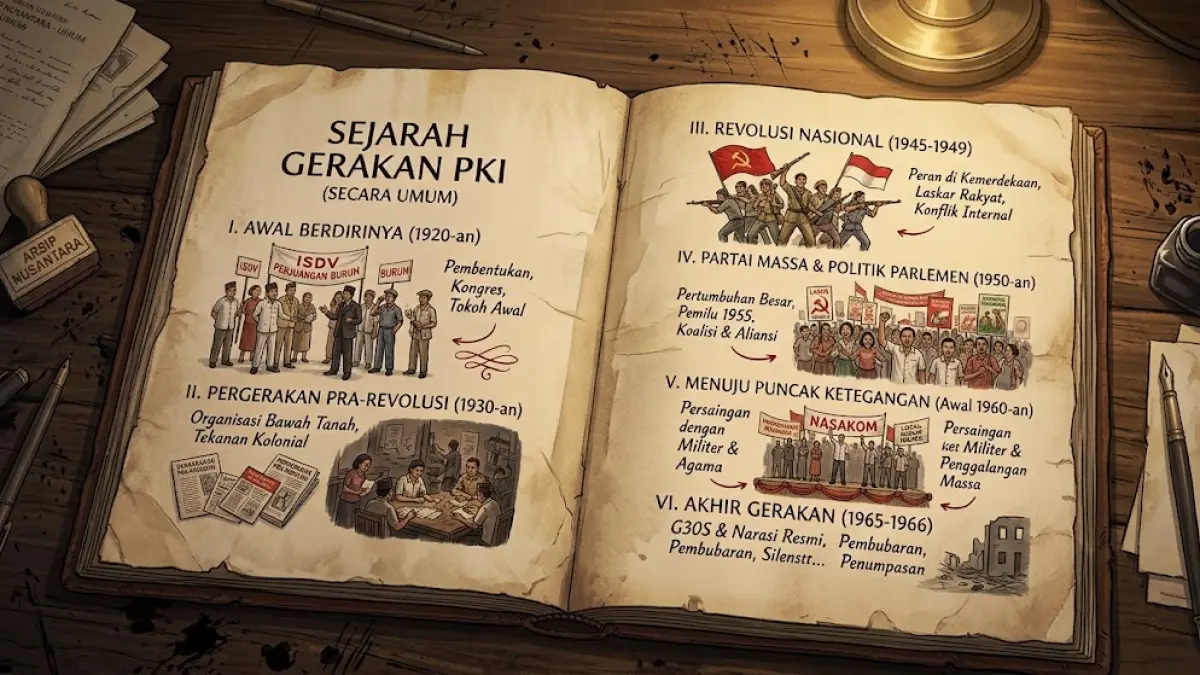 NUSANTARA - UMUM
ARSIP
NUSANTARA
SEJARAH
GERAKAN PKI
(SECARA UMUM)
I. AWAL BERDIRINYA (1920-an)
ISDV
ISDV
PERJUANGAN BURUH
BURUH
Pembentukan,
Kongres,
Tokoh Awal
II. PERGERAKAN PRA-REVOLUSI (1930-an)
Organisasi Bawah Tanah,
Tekanan Kolonial
III. REVOLUSI NASIONAL (1945-1949)
Peran di Kemerdekaan,
Laskar Rakyat,
Konflik Internal
IV. PARTAI MASSA & POLITIK PARLEMEN (1950-an)
Pertumbuhan Besar,
Pemilu 1955,
Koalisi & Aliansi
V. MENUJU PUNCAK KETEGANGAN (Awal 1960-an)
Persaingan
dengan
Militer &
Agama
NASAKOM
LOCAL
Persaingan
ket Militer &
Penggalangan
Massa
VI. AKHIR GERAKAN (1965-1966)
G30S & Narasi Resmi,
Pembubaran, Silenstt...
Pembubaran,
Penumpasan